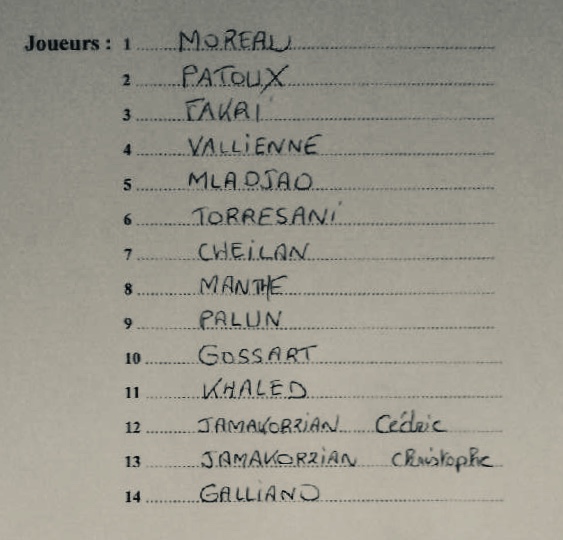 Joueurs : 1 MOREAU
2 PATOUX
3 FAKRI
4 VALLIENNE
5 MLADJAO
6 TORRESANI
7 CHEILAN
8 MANTHE
9 PALUN
10 GOSSART
11 KHALED
12 JAMAKORZIAN Cédric
13 JAMAKORZIAN Christophe
14 GALLIANO